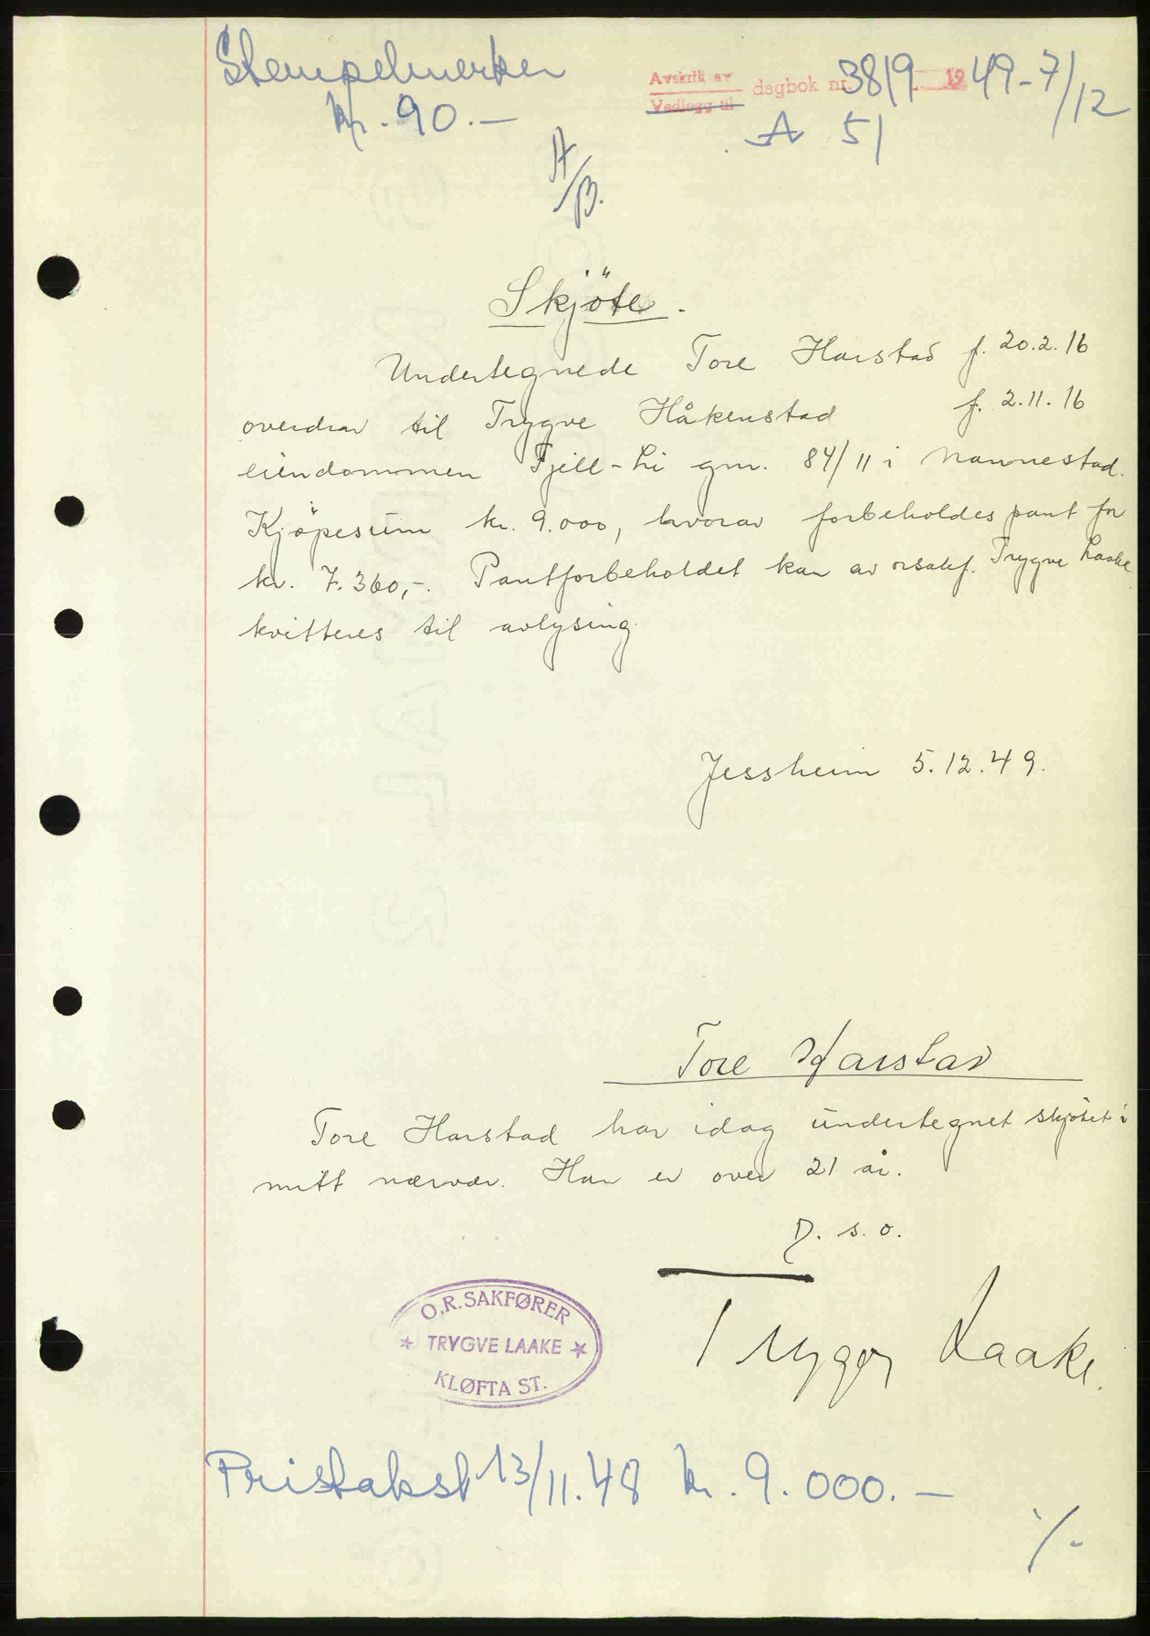 Stempelmerker
kr. 90.-
Avskrift av
Vedlegg til
dagbok nr. 3819 1949-7/12
A 51
A/B.
Skjöte.
Undertegnede Tore Harstad f. 20.2.16
overdrar til Trygve Håkenstad f. 2.11.16
eiendommen Fjell-Li gnr. 84/11 i Nannestad.
Kjöpesum kr. 9.000, hvorav forbeholdes pant for
kr. 7.360,-. Pantforbeholdet kan av orsakf. Trygve Laake
kvitteres til avlysing.
Jessheim 5.12.49.
Tore Harstad
Tore Harstad har idag undertegnet skjötet i
mitt nærvær. Han er over 21 år.
D. s. o.
Trygve Laake.
O.R.SAKFØRER
* TRYGVE LAAKE *
KLØFTA ST.
Pristakst 13/11.48 kr. 9.000.-